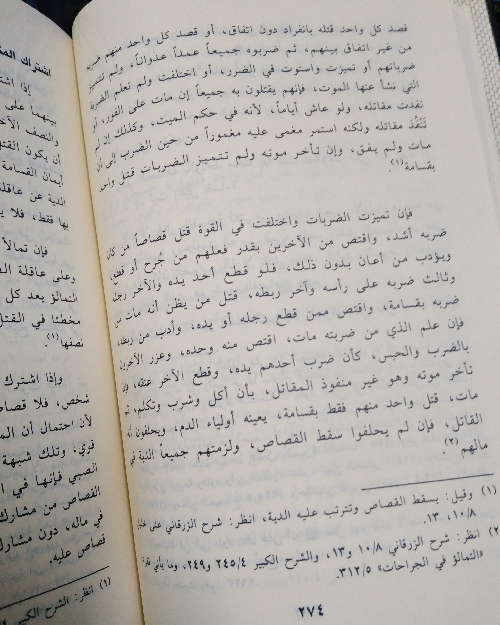 قصد كل واحد قتله بانفراد دون اتفاق، أو قصد كل واحد منهم ضربه
من غير اتفاق بينهم، ثم ضربوه جميعاً عمداً عدواناً، ولم تتميز
ضرباتهم أو تميزت واستوت في الضرر، أو اختلفت ولم تعلم الضربة
التي نشأ عنها الموت، فإنهم يقتلون به جميعاً إن مات على الفور، أو
نفذت مقاتله، ولو عاش أياماً، لأنه في حكم الميت، وكذلك إن لم
تَنْفُذ مقاتله ولكنه استمر مغمى عليه مغموراً من حين الضرب إلى أن
مات ولم يفق، وإن تأخر موته ولم تتميز الضربات قتل واحد
بقسامة(١).
فإن تميزت الضربات واختلفت في القوة قتل قصاصاً من كان
ضربه أشد، واقتص من الآخرين بقدر فعلهم من جُرح أو قطع،
ويؤدب من أعان بدون ذلك، فلو قطع أحد يده والآخر رجله
وثالث ضربه على رأسه وآخر ربطه، قتل من يظن أنه مات من
ضربه بقسامة، واقتص ممن قطع رجله أو يده، وأدب من ربطه،
فإن علم الذي من ضربته مات، اقتص منه وحده، وعزر الآخرون
بالضرب والحبس، كأن ضرب أحدهم يده، وقطع الآخر عنقه، فإن
تأخر موته وهو غير منفوذ المقاتل، بأن أكل وشرب وتكلم، ثم
مات، قتل واحد منهم فقط بقسامة، يعينه أولياء الدم، ويحلفون أنه
القاتل، فإن لم يحلفوا سقط القصاص، ولزمتهم جميعاً الدية في
مالهم(٢).
(١) وقيل: يسقط القصاص وتترتب عليه الدية، انظر: شرح الزرقاني على خليل
١٠/٨، ١٣.
(٢) انظر: شرح الزرقاني ١٠/٨ و١٣، والشرح الكبير ٢٤٥/٤ و٢٤٩، وما يأتي في
«التمالؤ في الجراحات» ٣١٢/٥.
٢٧٤
اشتراك
إذا اشتر
بينهما على
والنصف الآخر
أن يكون القتل
أيمان القسامة
الدية عن عاقلة
بها فقط، فلا
فإن تمالأ
وعلى عاقلة
التمالؤ يعد كل
مخطئا في القتل
نصفها(١).
وإذا اشترك
شخص، فلا قصاص
لأن احتمال أن
قوي، وتلك شبهة
الصبي فإنها في
القصاص من مشارك
في ماله، دون مشارك
قصاص عليه.
(١) انظر: الشرح الكبير